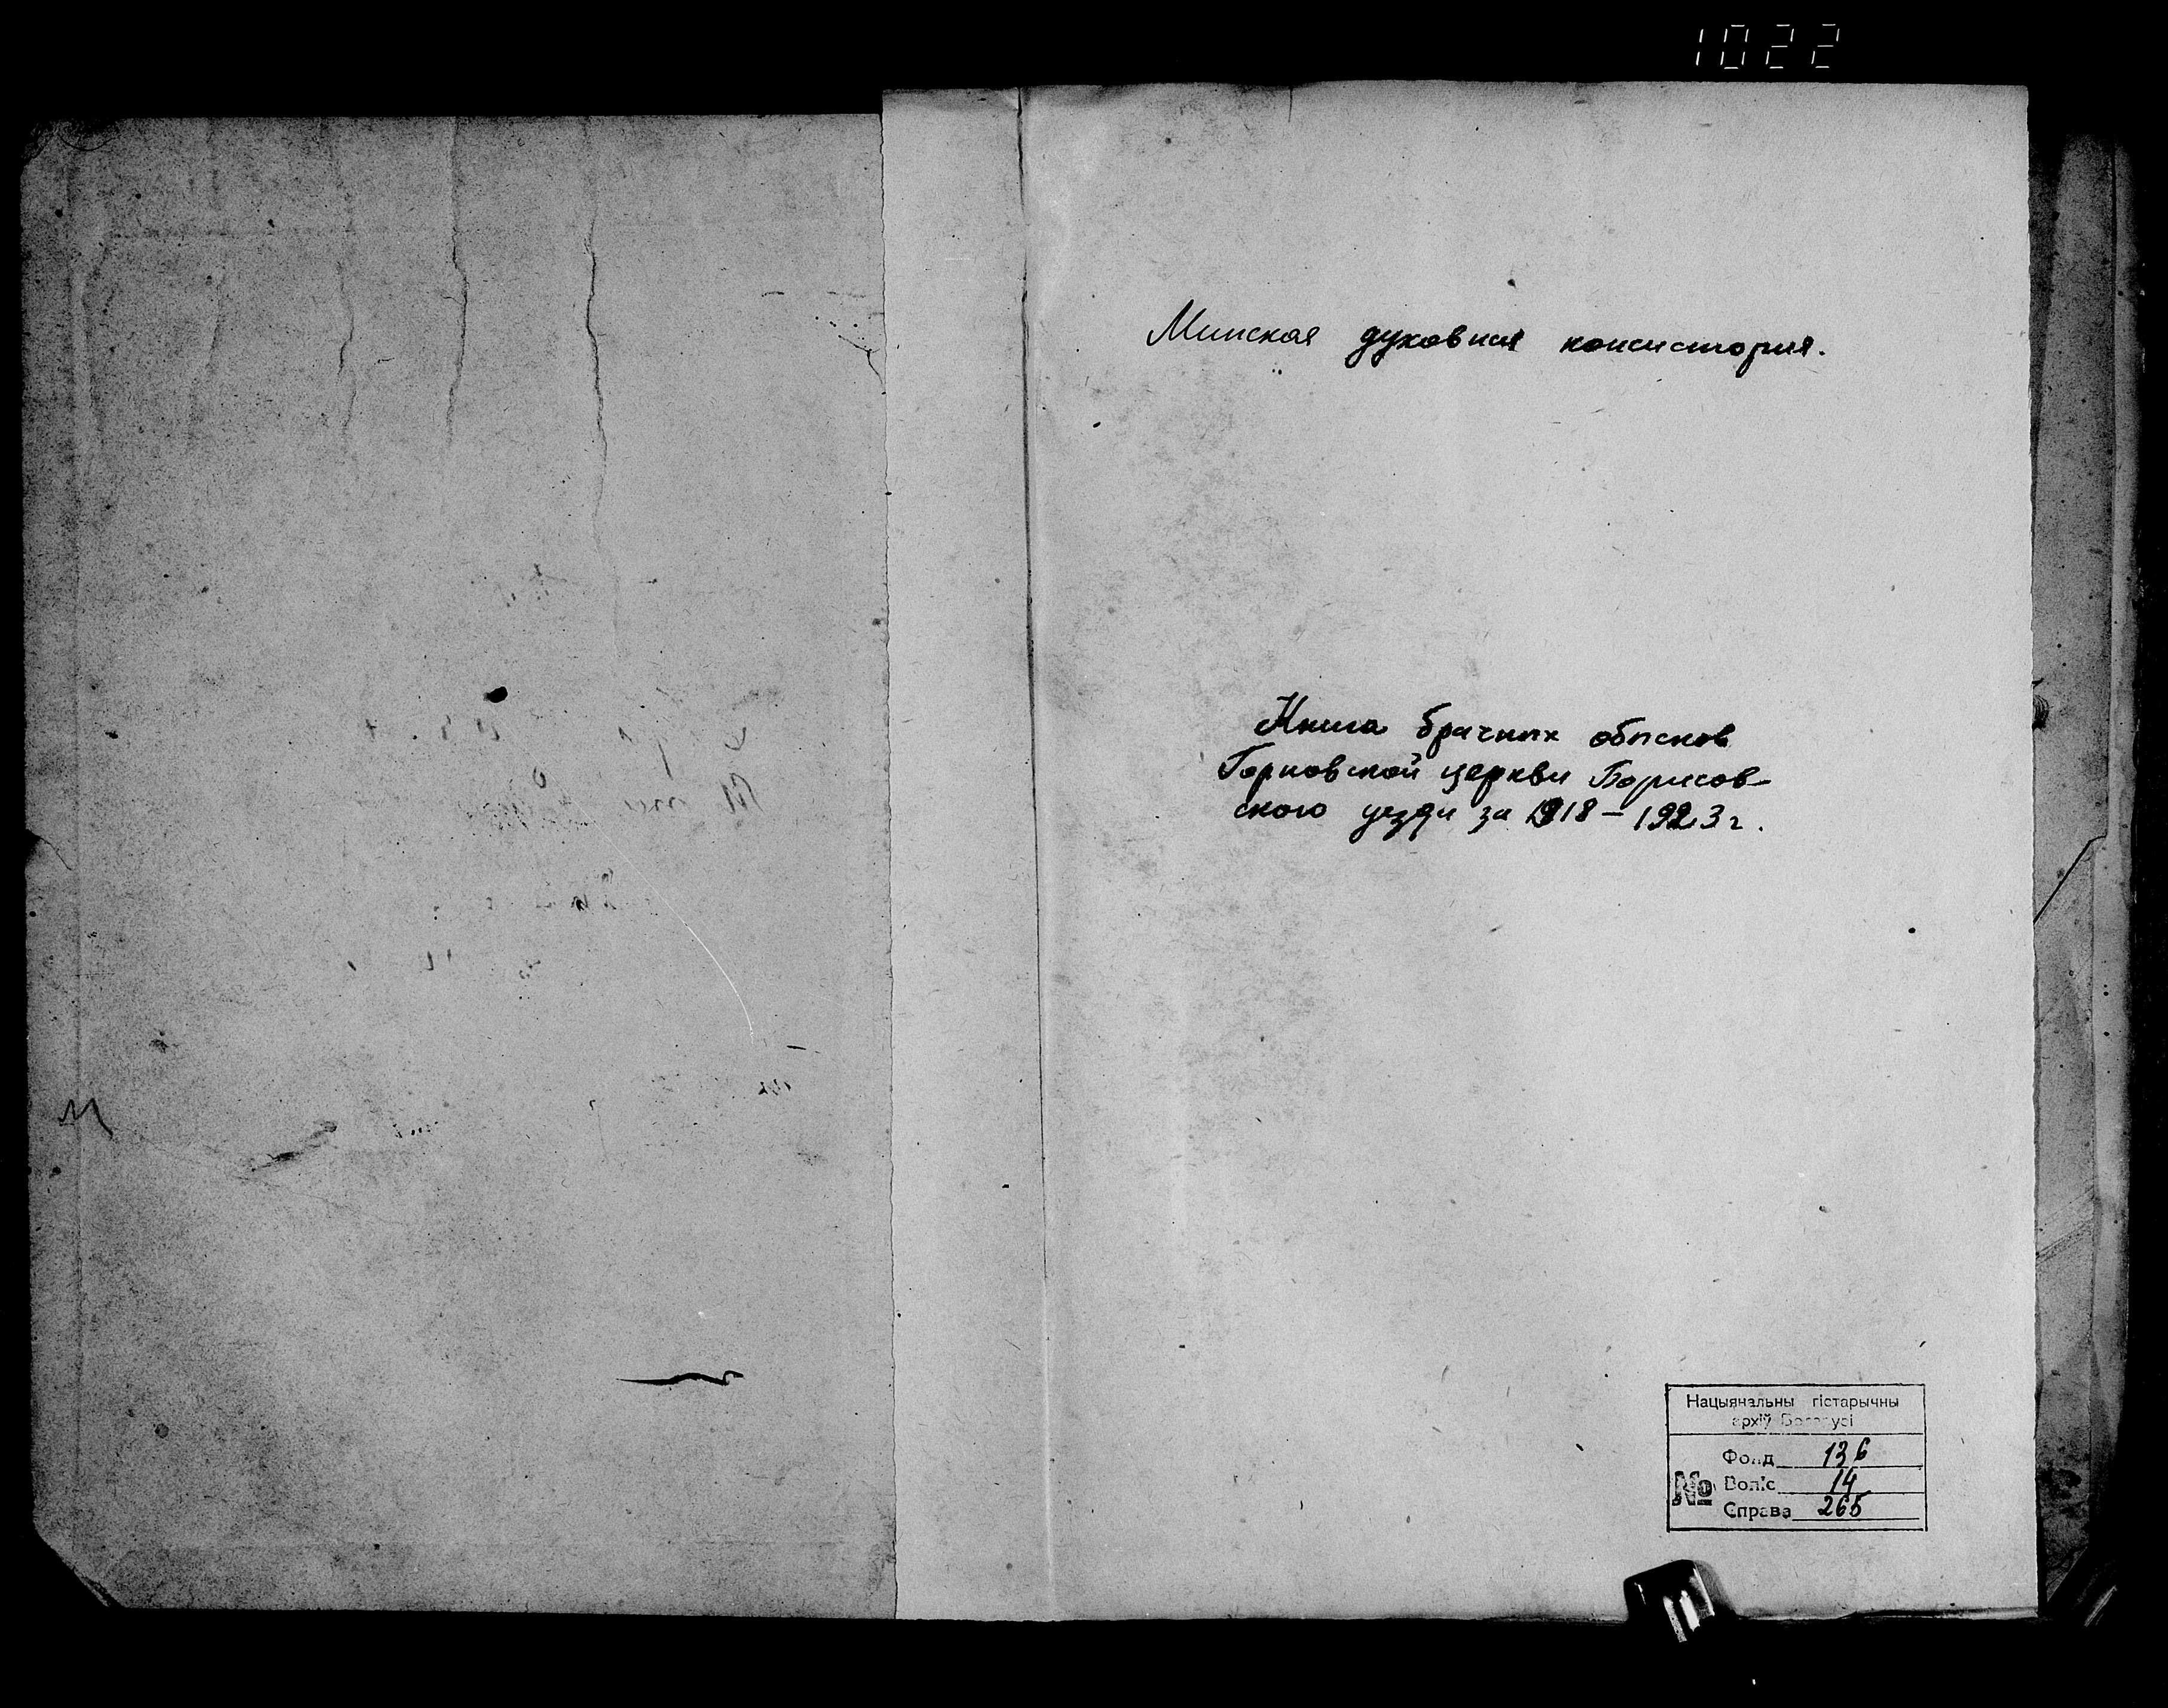 1022
Минская духовная консистория.
Книга брачных обысков
Горковской церкви Борисов-
ского уезда за 1918-1923 г.
Нацыянальны гістарычны
архіў Беларусі
Фонд 136
№ Вопіс 14
Справа 265